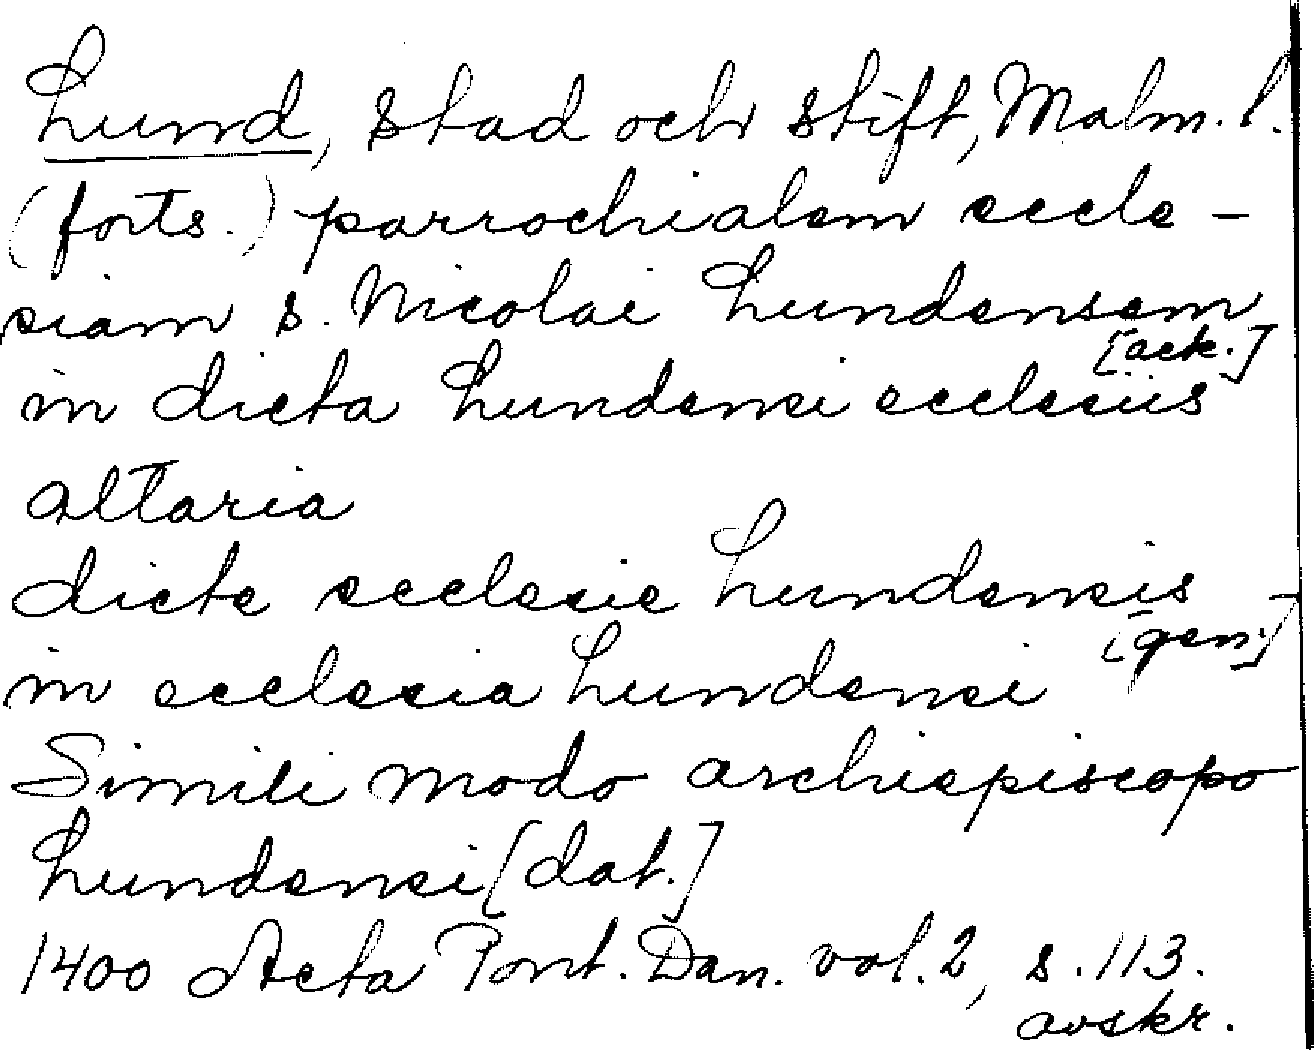 Lund, stad och stift, Malm. l.
(forts.) parrochialem eccle-
siam s. Nicolai Lundensem
[ack.]
in dicta Lundensi ecclesiis
altaria
dicte ecclesie Lundensis -
[gen.]
in ecclesia Lundensi
Simili modo archiepiscopo
Lundensi [dat.]
1400 Acta Pont. Dan. vol. 2, s. 113.
avskr.